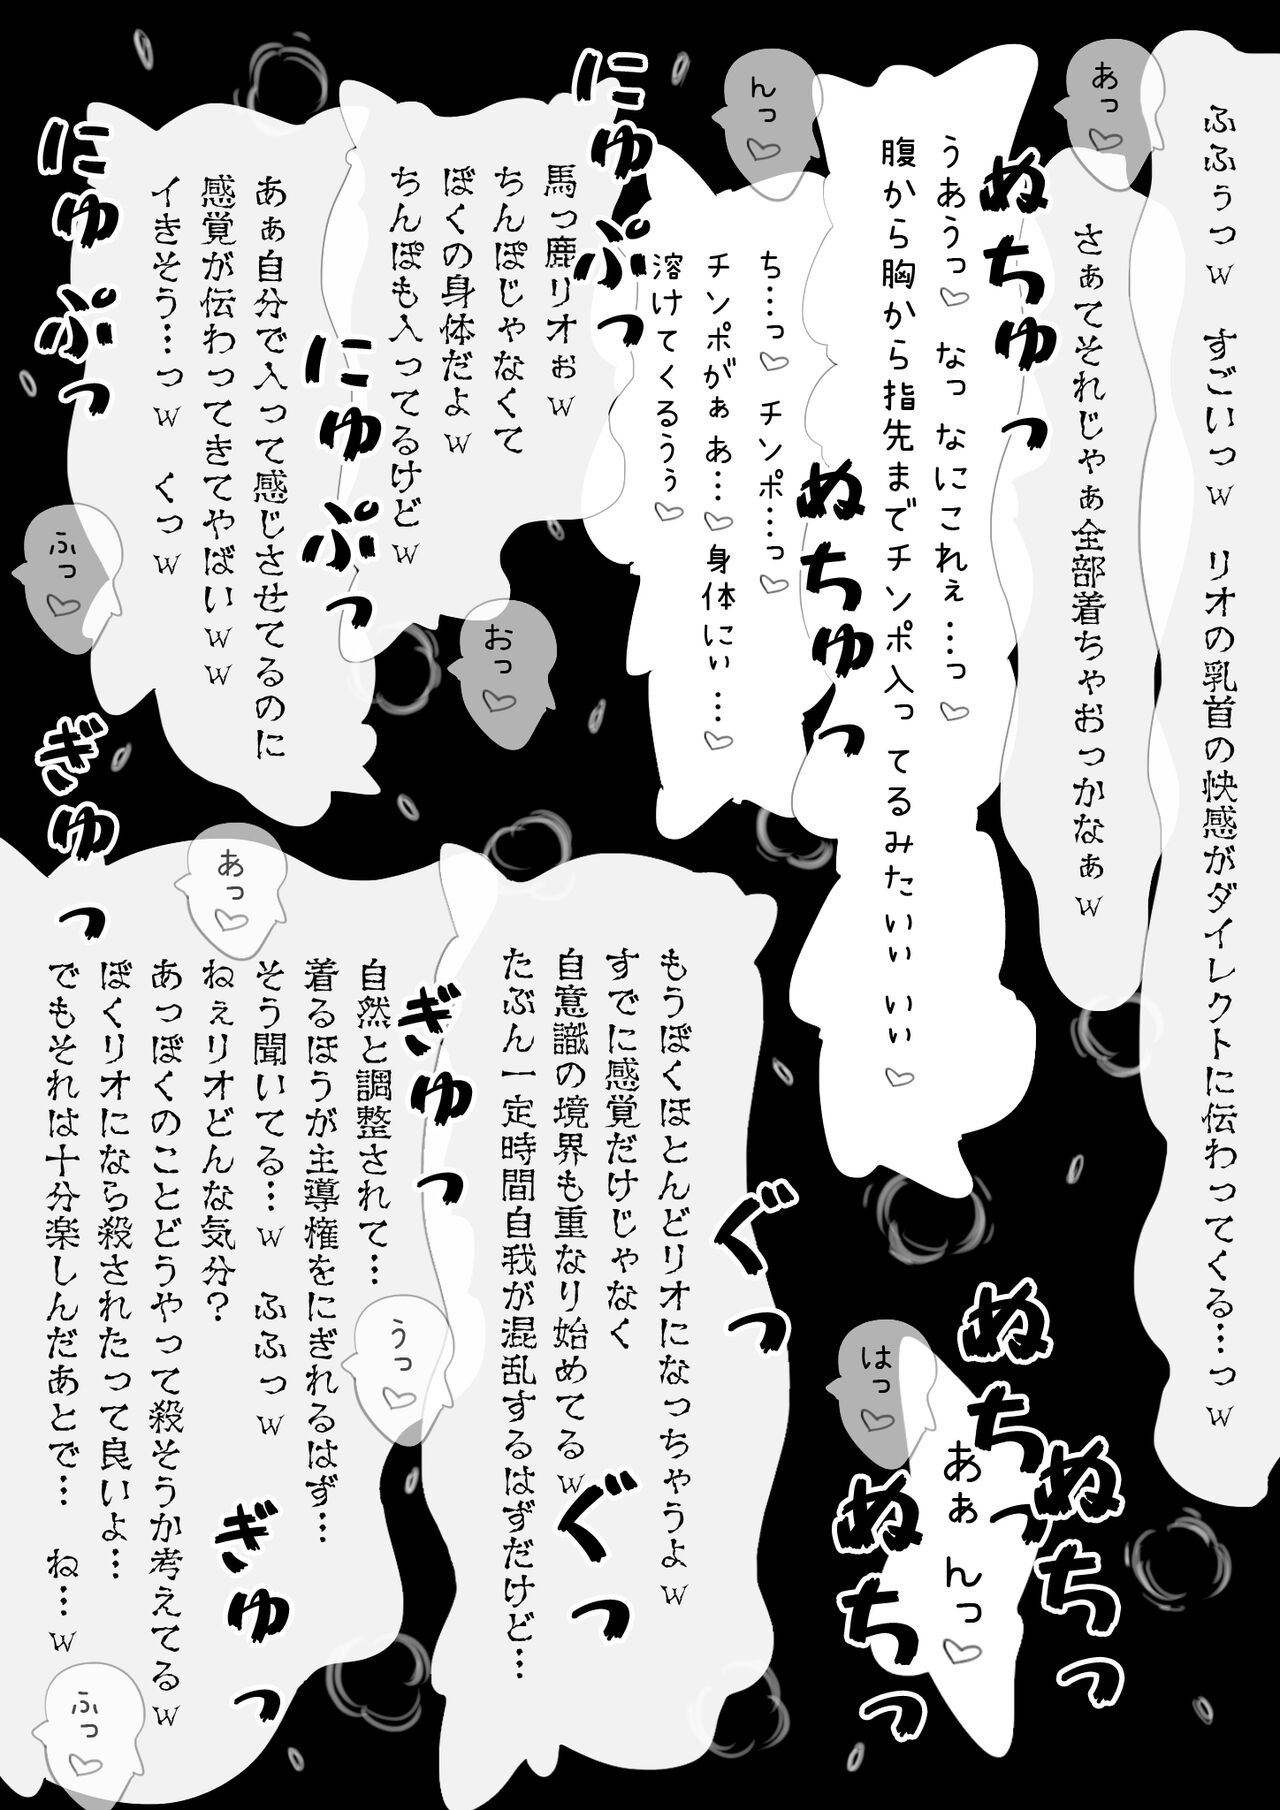 ふふぅっw　すごいっw　リオの乳首の快感がダイレクトに伝わってくる…っw
あっ♡
さぁてそれじゃぁ全部着ちゃおっかなぁw
ぬちゅっ
うあうっ♡　なっ なにこれぇ…っ♡
腹から胸から指先までチンポ入ってるみたいぃいぃ♡
ぬちゅっ
んっ♡
ち…っ♡ チンポ…っ♡
チンポがぁあ…♡身体にぃ…♡
溶けてくるうぅ♡
にゅぷっ
馬っ鹿リオぉw
ちんぽじゃなくて
ぼくの身体だよw
ちんぽも入ってるけどw
おっ♡
にゅぷっ
あぁ自分で入って感じさせてるのに
感覚が伝わってきてやばいww
イきそう…っw　くっw
にゅぷっ
ふっ♡
ぬちっ
ぬちっ
あぁんっ♡
はっ♡
ぬちっ
ぐっ
もうぼくほとんどリオになっちゃうよw
すでに感覚だけじゃなく
自意識の境界も重なり始めてるw
たぶん一定時間自我が混乱するはずだけど…
ぐっ
ぎゅっ
自然と調整されて…
着るほうが主導権をにぎれるはず…
そう聞いてる…w　ふふっw
うっ♡
あっ♡
ねぇリオどんな気分？
あっぼくのことどうやって殺そうか考えてるw
ぼくリオになら殺されたって良いよ…
でもそれは十分楽しんだあとで…　ね…w
ぎゅっ
ぎゅっ
ふっ♡